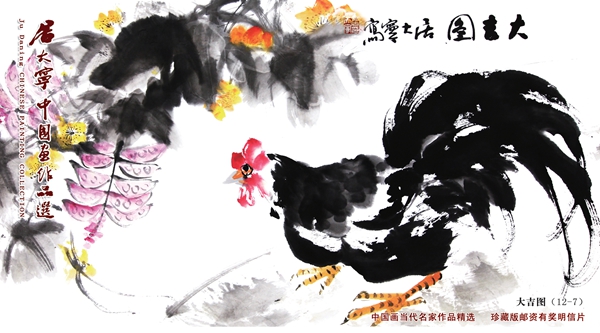 大吉图 居大寧寫
居大寧中国画作品選
Ju Daning CHINESE PAINTING COLLECTION
大吉图（12-7）
中国画当代名家作品精选 珍藏版邮资有奖明信片